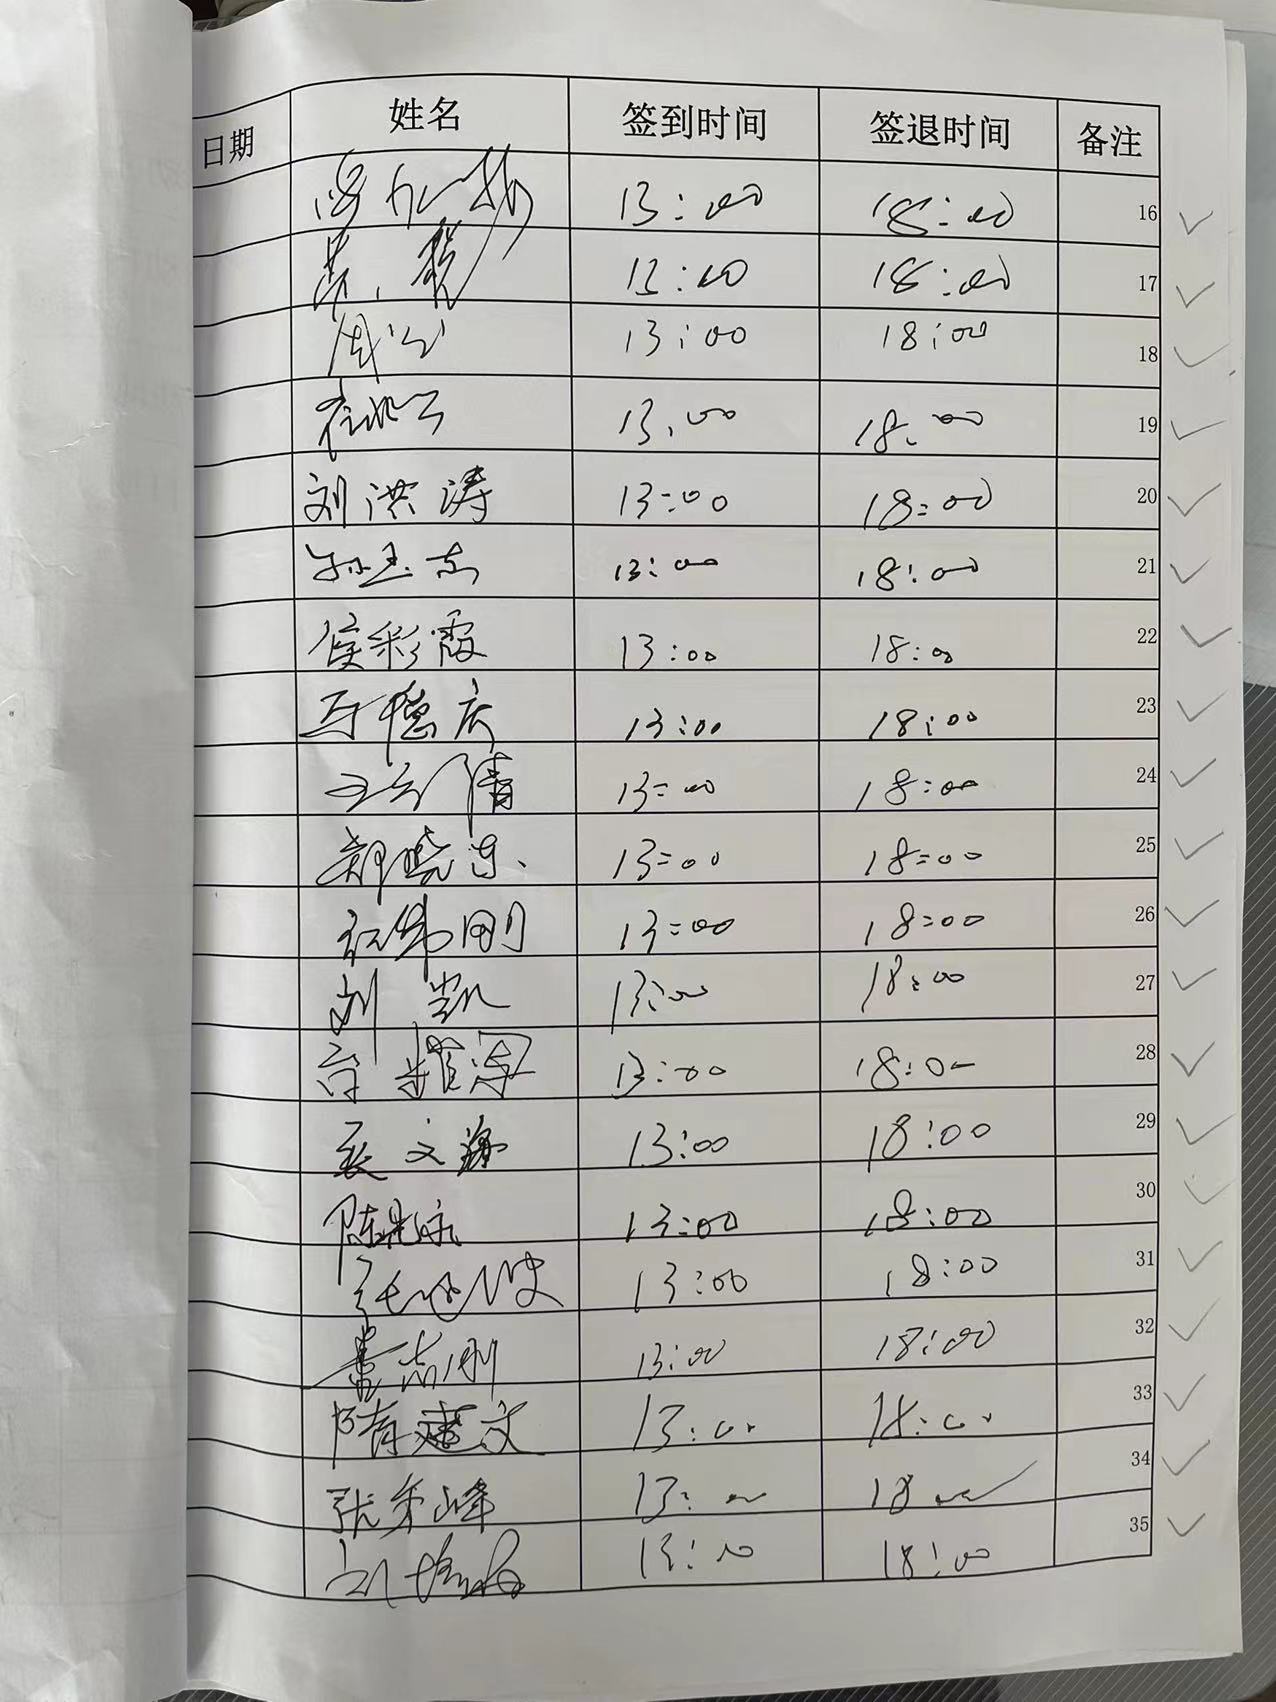 日期 姓名 签到时间 签退时间 备注
13:00 18:00 16
13:00 18:00 17
13:00 18:00 18
13:00 18:00 19
刘洪涛 13:00 18:00 20
孙玉志 13:00 18:00 21
侯彩霞 13:00 18:00 22
马德庆 13:00 18:00 23
13:00 18:00 24
郑晓东 13:00 18:00 25
13:00 18:00 26
刘凯 13:00 18:00 27
13:00 18:00 28
文 13:00 18:00 29
陈 13:00 18:00 30
13:00 18:00 31
志刚 13:00 18:00 32
隋建文 13:00 18:00 33
张 峰 13:00 18:00 34
13:00 18:00 35